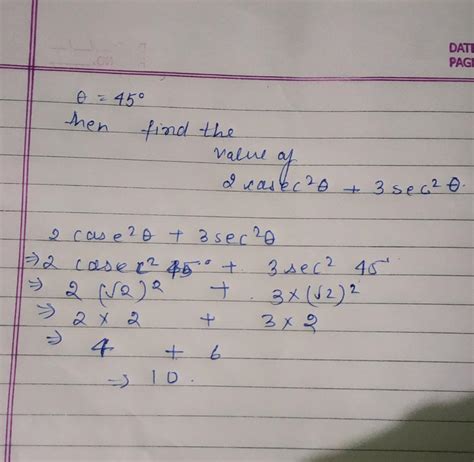 DATE
PAGE
θ = 45°
then find the
value of
2 casec²θ + 3 sec²θ.
2 case²θ + 3 sec²θ
⇒ 2 casec² 45° + 3 sec² 45°
⇒ 2 (√2)² + 3×(√2)²
⇒ 2 × 2 + 3 × 2
⇒ 4 + 6
⇒ 10.